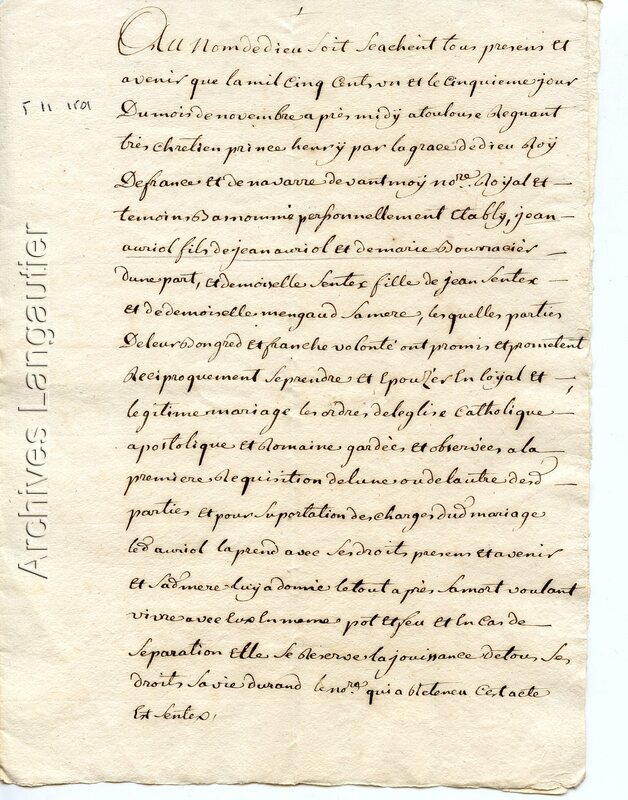 Au Nom de dieu soit Seachent tous presens et
avenir que lamil Cinq Cents vn et le Cinquieme jour
5 11 1501
Du mois de novembre apres midy atoulouse Regnant
très chretien prince henry par la grace dedieu Roy
De france et de navarre devant moy nore. Royal et
temoins Bas nommé personnellement Etably, jean
auriol fils de jean auriol et de marie Bourracier
dune part, et demoiselle Sentex fille de jean Sentex
et de demoiselle mengaud Samere, lesquelles parties
Deleurs Bongred et franche volonté ont promis et prometent
Reciproquement se prendre et Epouzer En loyal et
legitime mariage les ordres deleglise Catholique
apostolique et Romaine gardées et observées ala
premiere Requisition delune ou delautre desd
parties et pour Suportation des Charges dud mariage
led auriol la prend avec Ses droits presens et avenir
et Sad mere luy a donné le tout après Samort voulant
vivre avec Eux En meme pot et feu et En Cas de
Separation Elle Se Reserve la jouissance de tous Ses
droits Savie durand le nore. qui a Retenu Cest acte
Est Sentex,
Archives Langautier